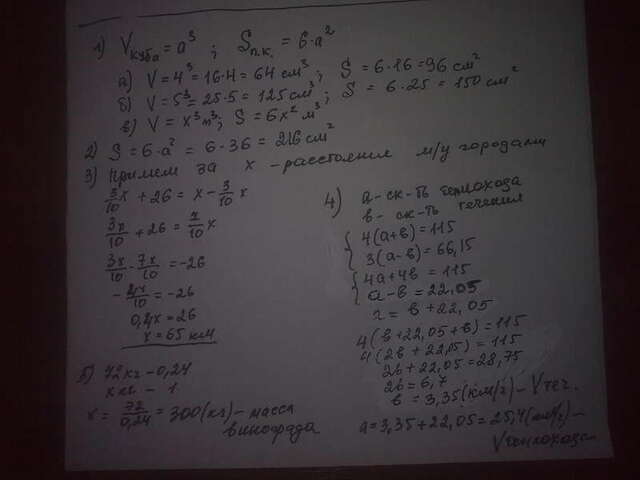 1) Vкуба = a³ ; Sп.к. = 6·a²
а) V = 4³ = 16·4 = 64 см³ ; S = 6·16 = 96 см²
б) V = 5³ = 25·5 = 125 см³ ; S = 6·25 = 150 см²
в) V = x³ м³ ; S = 6x² м³
2) S = 6·a² = 6·36 = 216 см²
3) Примем за x - расстояния м/у городами
3/10 x + 26 = x - 3/10 x
3x/10 + 26 = 7/10 x
3x/10 - 7x/10 = -26
- 4x/10 = -26
0,4x = 26
x = 65 км
4) а - ск-ть теплохода
в - ск-ть течения
{ 4(а+в) = 115
3(а-в) = 66,15
{ 4а+4в = 115
а-в = 22,05
а = в + 22,05
4(в+22,05+в) = 115
4(2в + 22,05) = 115
2в + 22,05 = 28,75
2в = 6,7
в = 3,35 (км/ч) - Vтеч.
а = 3,35 + 22,05 = 25,4 (км/ч) -
Vтеплохода
5) 72 кг - 0,24
x кг - 1
x = 72/0,24 = 300 (кг) - масса
винограда